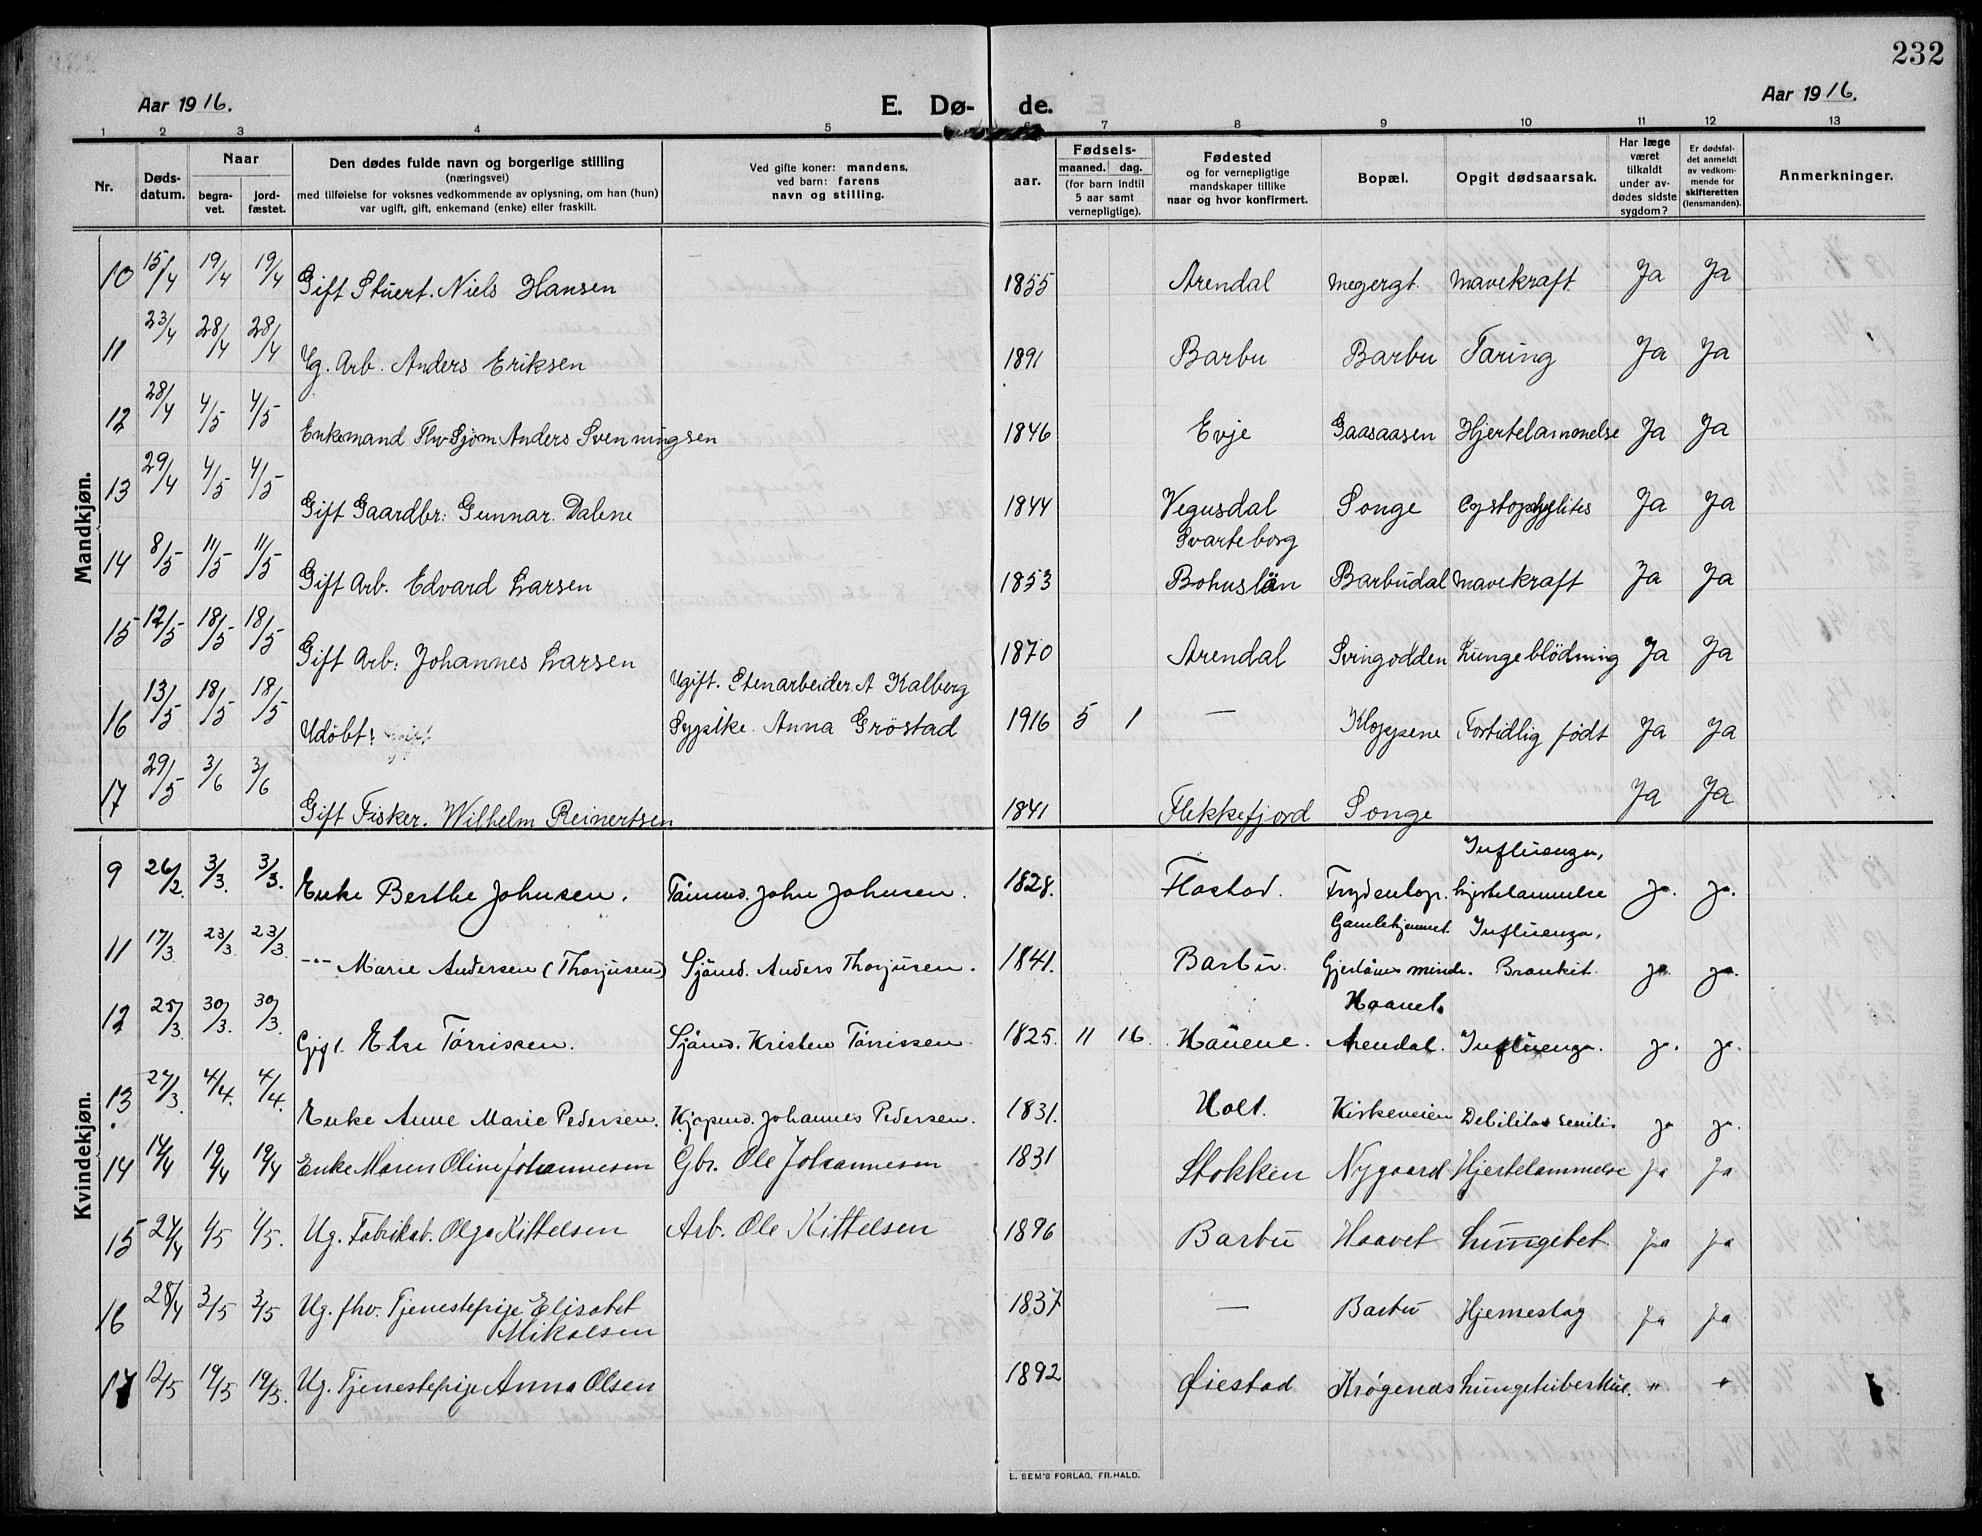 232
Aar 1916.
E. Dø- de.
Aar 1916.
1 2 3 4 5 6 7 8 9 10 11 12 13
Nr.
Døds-
datum.
Naar
begra-
vet.
jord-
fæstet.
Den dødes fulde navn og borgerlige stilling
(næringsvei)
med tilføielse for voksnes vedkommende av oplysning, om han (hun)
var ugift, gift, enkemand (enke) eller fraskilt.
Ved gifte koner: mandens,
ved barn: farens
navn og stilling.
aar.
Fødsels-
maaned. dag.
(for barn indtil
5 aar samt
vernepligtige).
Fødested
og for vernepligtige
mandskaper tillike
naar og hvor konfirmert.
Bopæl.
Opgit dødsaarsak.
Har læge
været
tilkaldt
under av-
dødes sidste
sygdom?
Er dødsfal-
det anmeldt
av vedkom-
mende for
skifteretten
(lensmanden).
Anmerkninger.
Mandkjøn.
10 15/4 19/4 19/4 Gift Stuert. Niels Hansen 1855 Arendal Megergt. Mavekraft Ja Ja
11 23/4 28/4 28/4 Ug. Arb. Anders Eriksen 1891 Barbu Barbu Taring Ja Ja
12 28/4 4/5 4/5 Enkemand Fhv Sjøm Anders Svenningsen 1846 Evje Gaasaasen Hjertelammelse Ja Ja
13 29/4 4/5 4/5 Gift Gaardbr: Gunnar. Dalene 1844 Vegusdal Songe Ja Ja
Svarteborg
14 8/5 11/5 11/5 Gift Arb. Edvard Larsen 1853 Bohuslän Barbudal Mavekraft Ja Ja
15 12/5 18/5 18/5 Gift Arb: Johannes Larsen 1870 Arendal Svinodden Lungeblödning Ja Ja
Ugift. Stenarbeider. A Kalberg
16 13/5 18/5 18/5 Udöbt: Sypike. Anna Gröstad 1916 5 1 — Kloppene Fortidlig født Ja Ja
17 29/5 3/6 3/6 Gift Fisker. Wilhelm Reinertsen 1841 Flekkefjord Songe Ja Ja
Kvindekjøn.
Influenza,
9 26/2 3/3. 3/3. Enke Berthe Johnsen. Tömmd. John Johnsen. 1828. Flostad. hjertelammelse ja. ja.
Gamlehjemmet. Influenza,
11 17/3. 23/3. 23/3. -"- Marie Andersen (Thorjusen) Sjömd. Anders Thorjusen. 1841. Barbu. minde. Bronkit. ja. ja.
Haavet.
12 25/3. 30/3. 30/3. Gift. Else Törrissen. Sjömd. Kristen Törrissen. 1825. 11 16. Arendal. Influenza. ja. ja.
13 27/3. 4/4. 4/4. Enke Anne Marie Pedersen. Kjøpmd. Johannes Pedersen. 1831. Holt. Kirkeveien Debilitas senilis ja ja.
14 14/4 19/4 19/4 Enke Maren Oline Johannesen Gbr. Ole Johannesen 1831 Stokken Nygaard Hjertelammelse Ja Ja
15 24/4 4/5 4/5. Ug. Fabrikab. Olga Kittelsen Arb. Ole Kittelsen 1896 Barbu Haavet Lungebet. Ja Ja
16 28/4 3/5 3/5 Ug. fhv. Tjenestepige Elisabet 1837 — Barbu Hjerneslag Ja Ja
Mikalsen
17 12/5 19/5 19/5. Ug. Tjenestepige Anna Olsen 1892 Øiestad Krøgenes Lungetuberkul. " "
L. SEM'S FORLAG, FR.HALD.